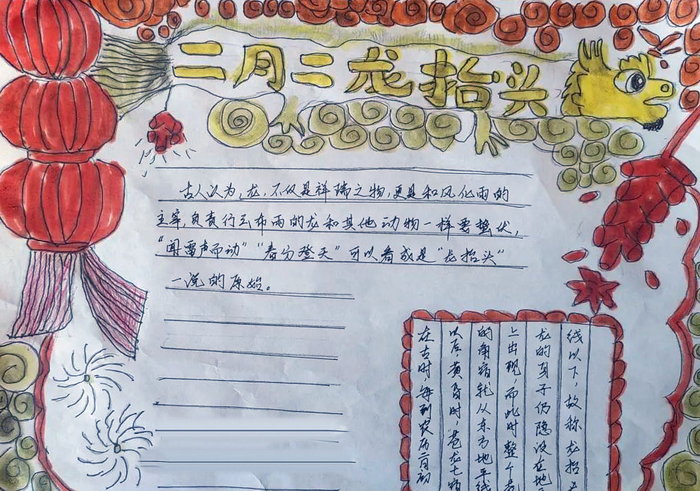 二月二龙抬头
古人认为,龙,不仅是祥瑞之物,更是和风化雨的
主宰,负责行云布雨的龙和其他动物一样要蛰伏,
"闻雷声而动""春分登天"可以看成是"龙抬头"
一说的原始。
在古时,每到农历二月初
以后黄昏时,苍龙七宿
的角宿就从东方地平线
上出现,而此时整个苍
龙的身子仍隐没在地
线以下,故称龙抬头